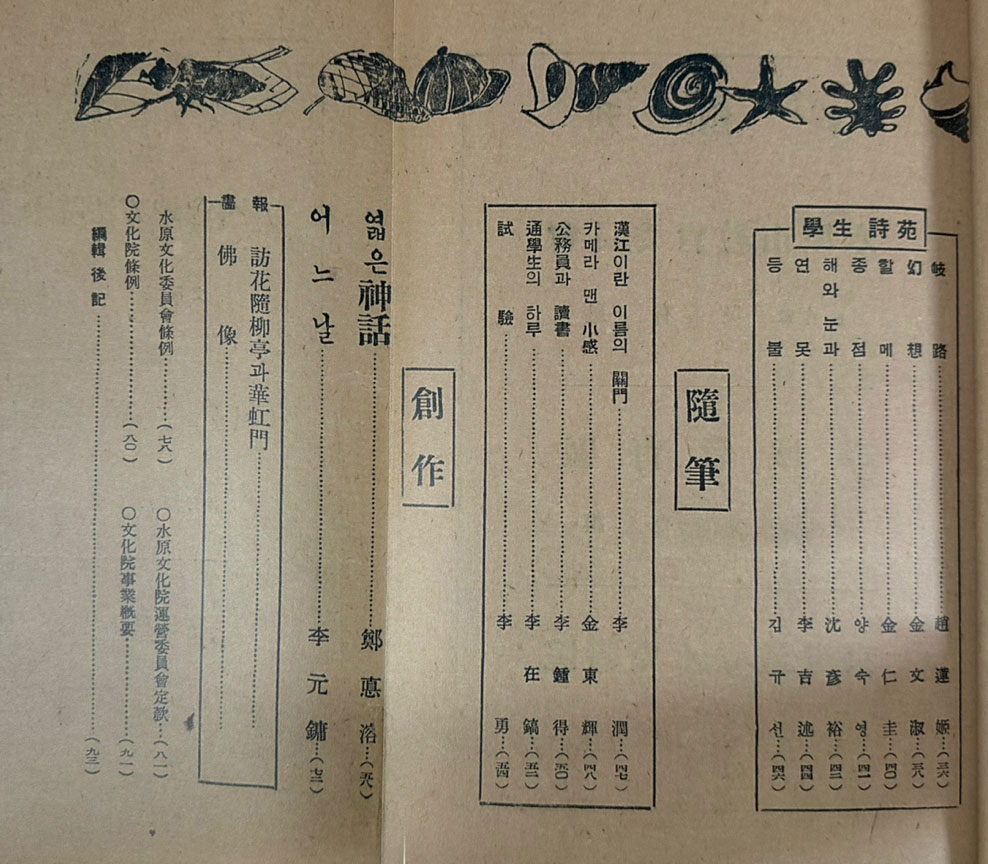 學生詩苑
岐路……趙蓮姬…(三六)
幻想……金文淑…(三八)
할메……金仁圭…(四〇)
종점……양숙영…(四一)
해와 눈과……沈彥裕…(四二)
연못……李吉述…(四四)
등불……김규선…(四六)
隨筆
漢江이란 이름의 關門……李潤…(四七)
카메라 맨 小感……金東輝…(四八)
公務員과 讀書……李鍾得…(五〇)
通學生의 하루……李在鎬…(五二)
試驗……李勇…(五四)
創作
엷은 神話……鄭悳溶…(五八)
어느날……李元鏞…(七三)
畵報
訪花隨柳亭과 華虹門……
佛像……
水原文化委員會條例……(七八)
○水原文化院運營委員會定款…(八一)
○文化院條例……(八〇)
○文化院事業槪要……(九一)
編輯後記……(九三)